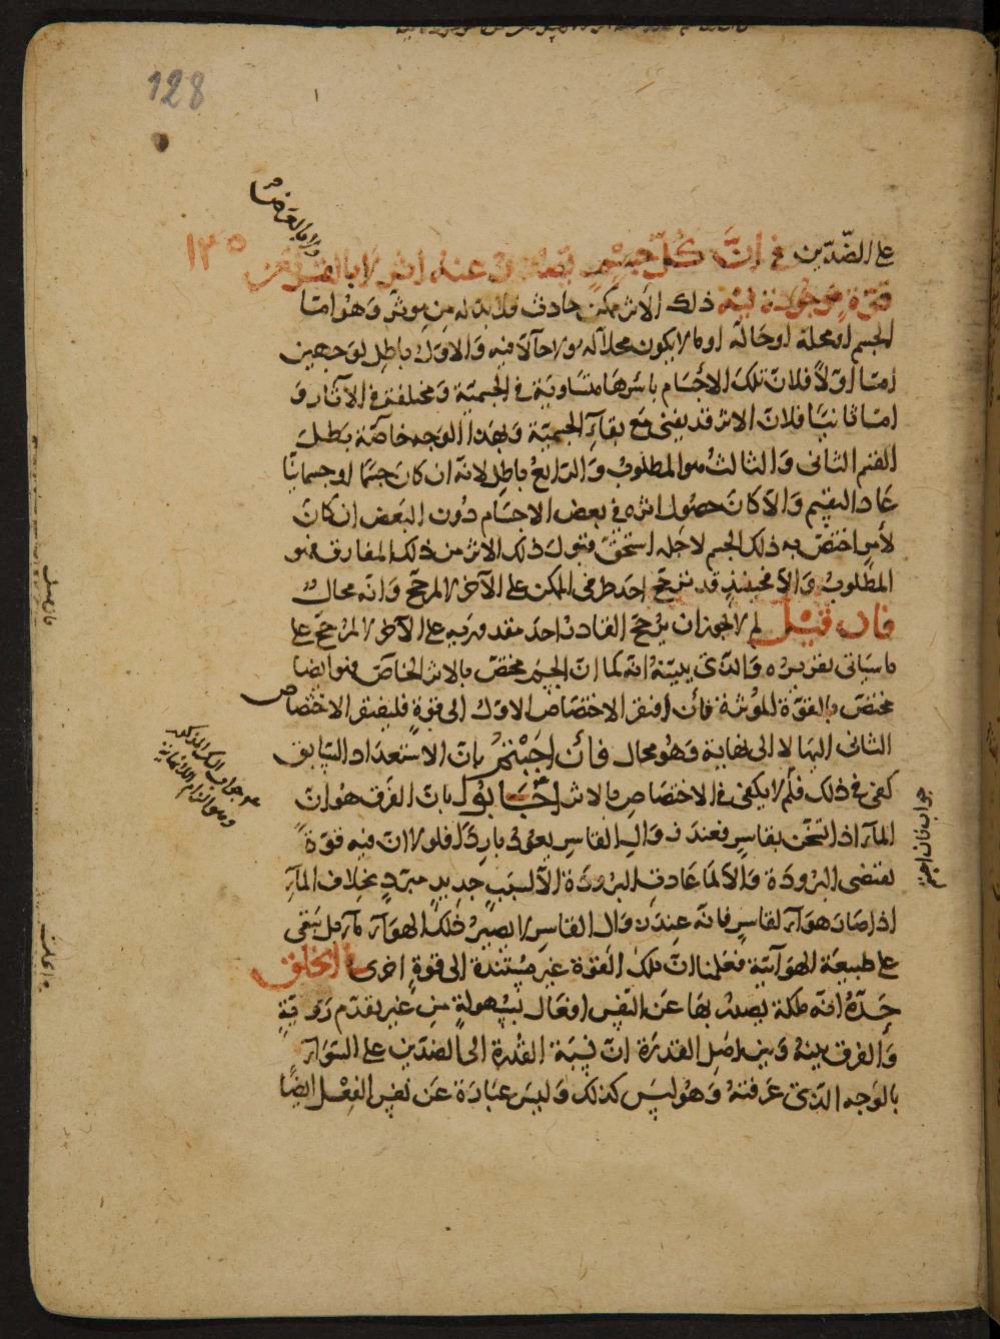 128
١٣٥
على الضدين في ان كل جسم يصدر عنه اثر لا بالقسر
ولا بالعرض
قوة موجودة فيه ذلك الاثر ممكن حادث فلا بد له من موثر وهو اما
الجسم او محله او حاله او ما لا يكون محلا له ولا حآلا فيه والاول باطل لوجهين
امّا اوّلاً فلانّ تلك الاجسام باسرها متساوية في الجسمية ومختلفة في الآثار و
امّا ثانيا فلان الاثر قد يفنى مع بقآء الجسمية وبهذا الوجه خاصّة بطل
القسم الثانى والثالث هو المطلوب والرابع باطل لانه ان كان جسمًا او جسمانيًا
عاد التقسيم والا كان حصول اثره في بعض الاجسام دون البعض ان كان
لأمر اختص به ذلك الجسم لاجله استحق قبول ذلك الاثر من ذلك المفارق فهو
المطلوب والا فحينئذ قد ترجح احد طرفى الممكن على الآخر لا لمرجح وانه محال
فان قيل لم لا يجوز ان يرجح القادر احد مقدوريه على الآخر لا لمرجح على
ما سياتى تقريره والذى يبينه انه كما ان الجسم مختص بالاثر الخاص فهو ايضا
مختص بالقوة الموثرة فأن افتقر الاختصاص الاول الى قوة فليفتقر الاختصاص
الثانى اليها لا الى نهاية وهو محال فأن اجبتم بان الاستعداد السابق
كفى في ذلك فلم لا يكفى في الاختصاص بالاثر اجابوا بان الفرق هو ان
المآء اذا تسخن بقاسر فعند زوال القاسر يعود باردا فلولا ان فيه قوة
تقتضى البرودة والا لما عادت البرودة الا لسبب جديد مبرد بخلاف المآء
اذا صار هوآء لقاسر فانه عند زوال القاسر لا يصير ذلك الهوآء مآء بل يبقى
على طبيعة الهوآئية فعلمنا ان تلك القوة غير مستندة الى قوة اخرى الخلق
حدّه انه ملكة يصدر بها عن النفس افعال بسهولة من غير تقدم روية
والفرق بينه وبين اصل القدرة ان نسبة القدرة الى الضدين على السوآء
بالوجه الذى عرفته وهو ليس كذلك وليس عبارة عن نفس الفعل ايضًا
جواب فان اجبتم